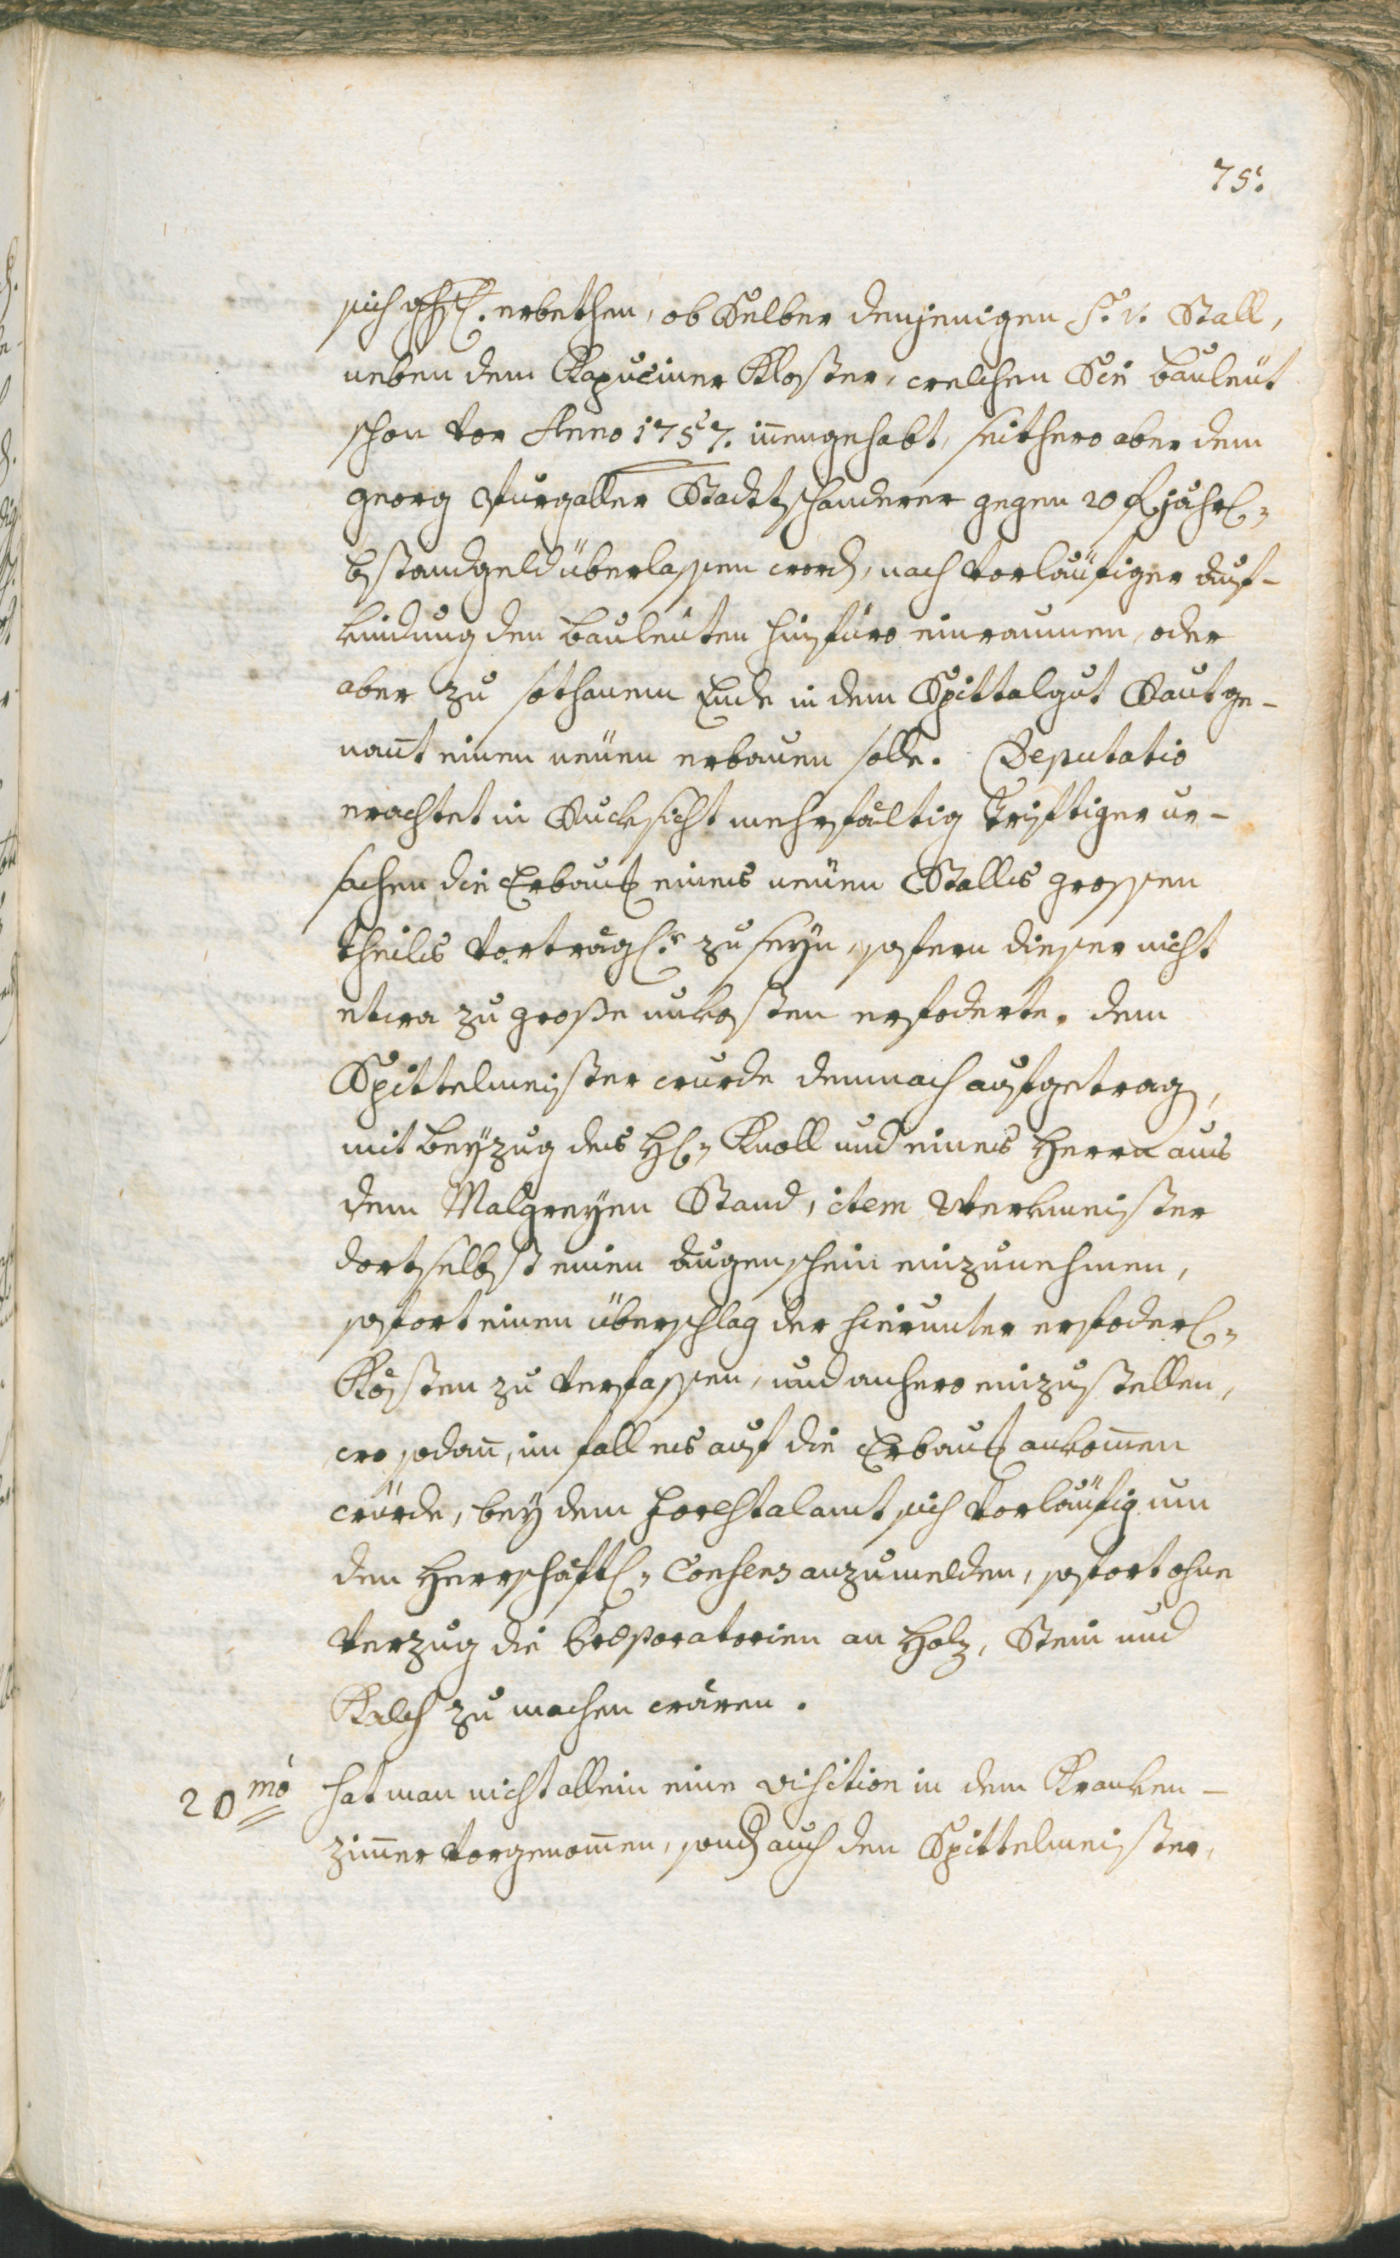 75.
sich ghst. erbethen, ob Selber denjenigen S. v. Stall,
neben dem Kapuciner Kloster, welchen die Bauleüt
schon vor Anno 1757. innengehabt, seithero aber dem
Georg Purgaller gegen 20 f jährl.
bstandgeld überlassen word, nach vorläüfiger auf-
kindung den Bauleüten hinfüro einraumen, oder
aber zu sothanem Ende in dem Spittalgut Sautge-
nant einen neüen erbauen solle. Deputatio
erachtet in Rucksicht mehrfältig triftiger ur-
sachen die Erbauung eines neüen Stalls grossen
theils vorträgl. zu seyn, sofern dieser nicht
etwa zu große unkosten erfoderte. dem
Spittelmeister wurde demnach aufgetrag,
mit beyzug des H. Knoll und eines Herrn aus
dem Malgreyen Stand, item Werkmeister
dortselbst einen augenschein einzunehmen,
sofort einen überschlag der hierunter erfoderl.
Kösten zu verfassen, und anhero einzustellen,
wo sodan, im fall es auf die Erbauung ankomen
würde, bey dem Forestalamt sich vorläüfig um
den Herrschaftl. Consens anzumelden, sofort ohne
verzug die Præparatorien an Holz, Stein und
Kalch zu machen wären.
20mo hat man nicht allein eine visition in dem Kranken-
zimer vorgenomen, sond auch den Spittelmeister,